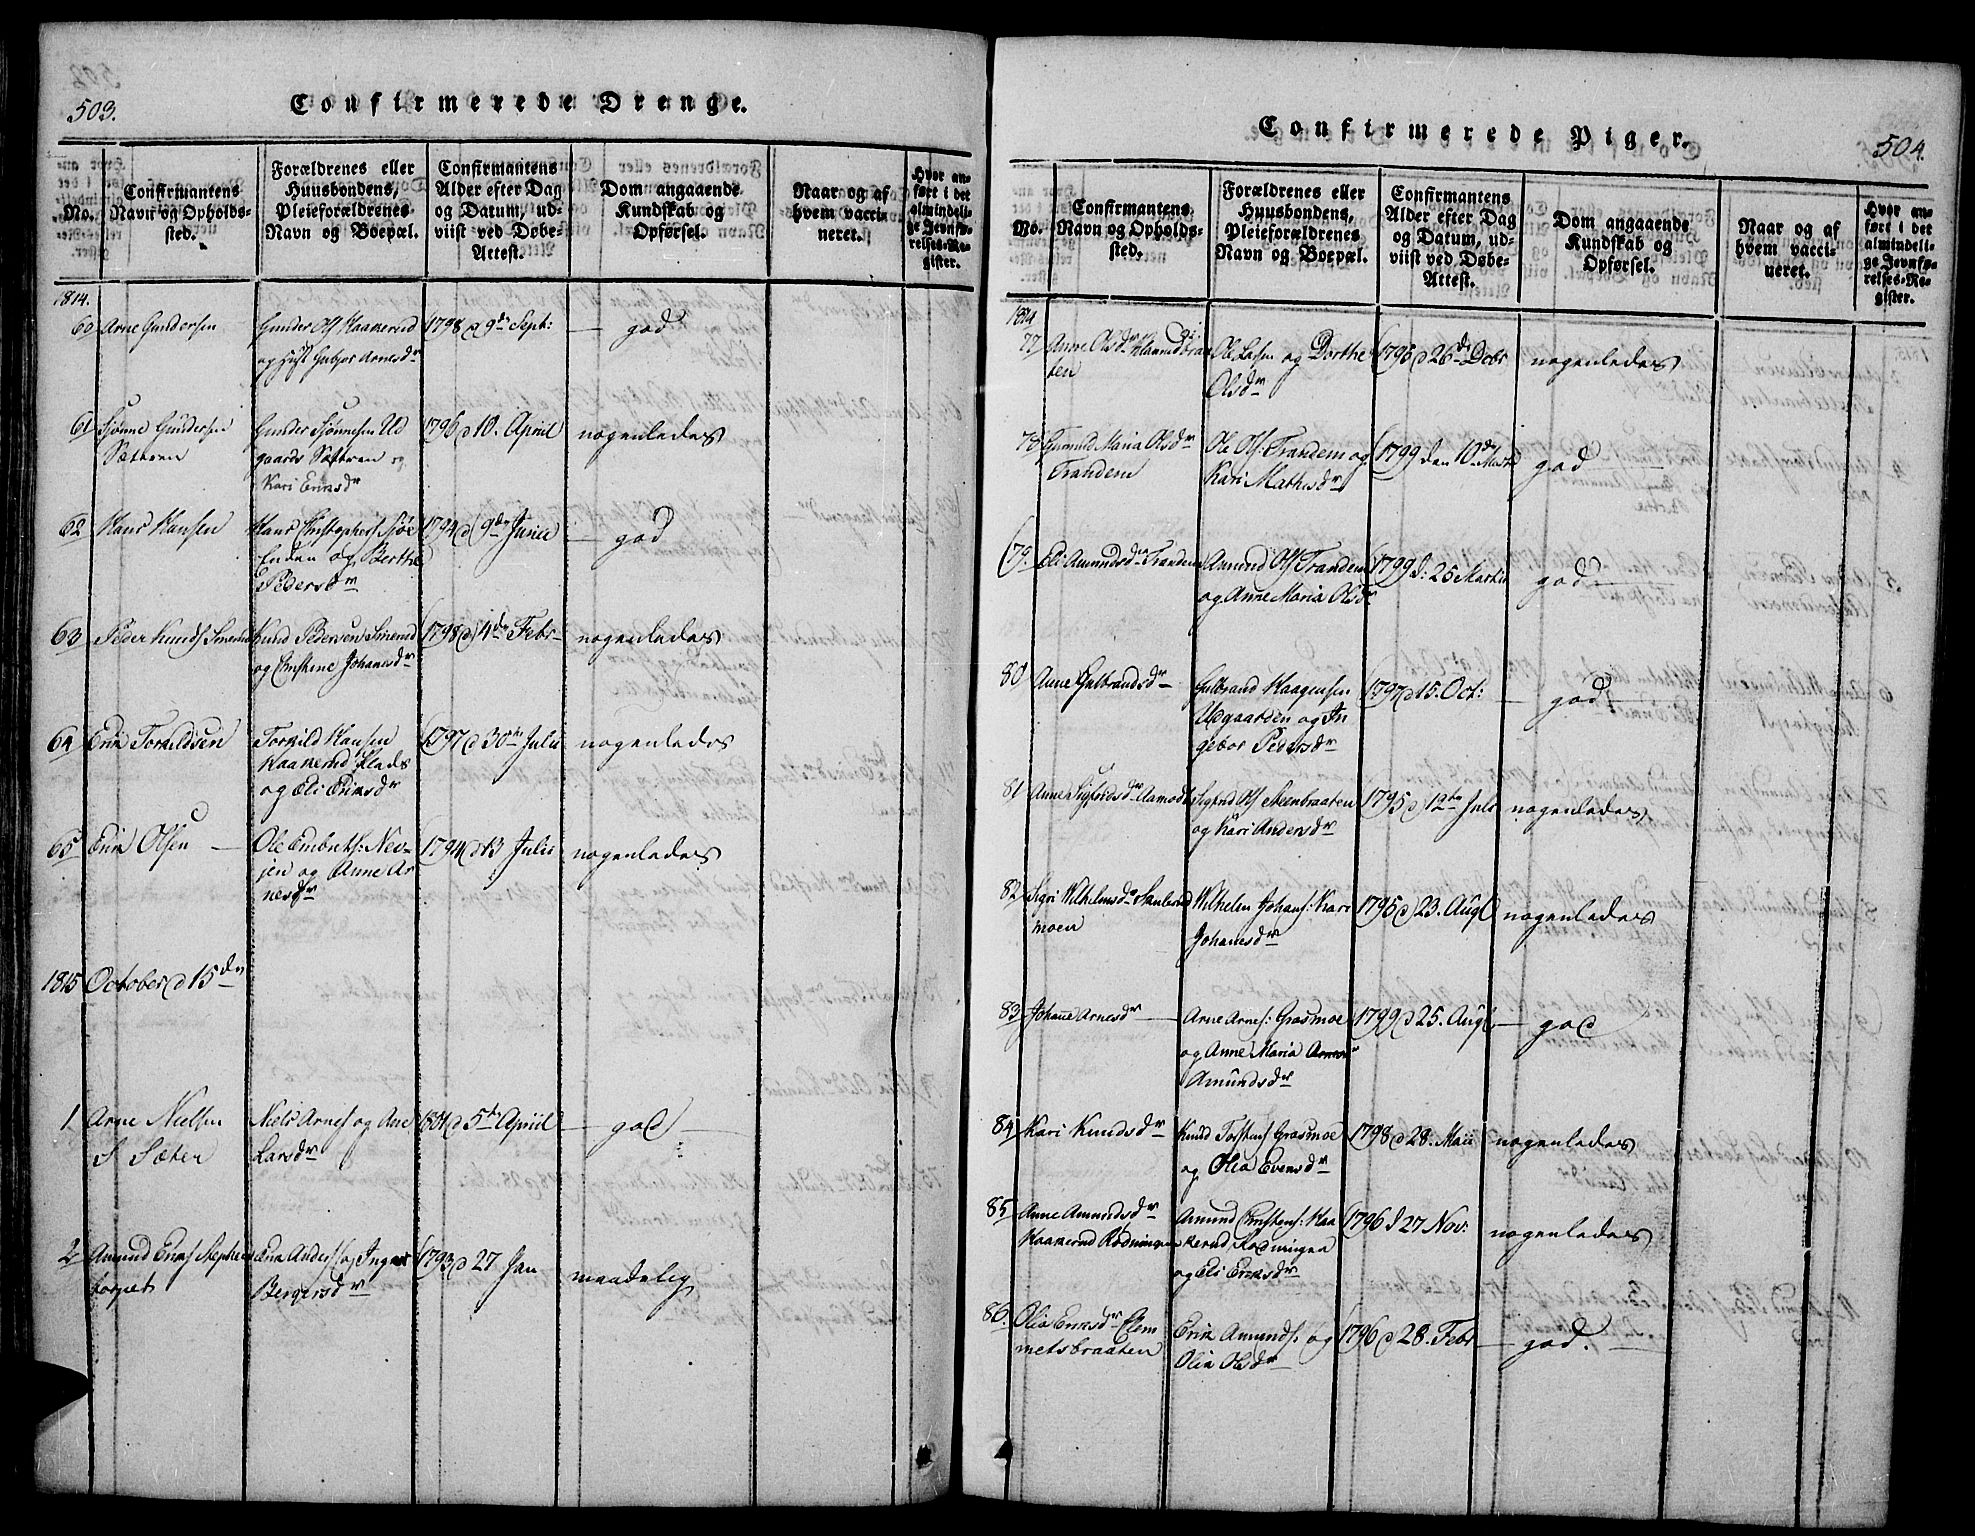 503.
Confirmerede Drenge.
No.
Confirmantens
Navn og Opholds-
sted.
Forældrenes eller
Huusbondens,
Pleieforældrenes
Navn og Boepæl.
Confirmantens
Alder efter Dag
og Datum, ud-
viist ved Døbe-
Attest.
Dom angaaende
Kundskab og
Opførsel.
Naar og af
hvem vacci-
neret.
Hvor an-
ført i det
almindeli-
ge Jevnfø-
relses-Re-
gister.
1814.
60 Arne Gundersen
Gunder Ols Haakerud
og Gubjør Arnesdr
1798 d 9de Sept:
god
61 Sjønne Gundersen
Sættren
Gunder Sjønnesen Ud
gaards Sættren og
Kari Eriksdr
1796 d 10. April
nogenledes
62 Hans Hansen
Hans Christophers Sjøe
Enden og Berthe
Pedersdr
1794 d 9de Junii
god
63 Peder Knuds Smerud
Knud Pedersen Smerud
og Christine Johanesdr
1798 d 4de Febr
nogenledes
64 Erik Torkildsen
Torkild Hansen
Haakerud Plads
og Eli Eriksdr
1797 d 30te Julii
nogenledes
65 Erik Olsen
Ole Embrets: Nev-
jen og Anne Ar
nesdr
1794 d 13 Julii
nogenledes
1815 October d 15dn
1 Arne Nielsen
S Sæter
Niels Arnes og Ane
Larsdr
1801 d 5te Apriil
god
2 Amund Eriks
torpet
Erik Anders og Inger
Bergersdr
1793 d 27 Jan
maadelig
Confirmerede Piger.
504.
No.
Confirmantens
Navn og Opholds-
sted.
Forældrenes eller
Huusbondens,
Pleieforældrenes
Navn og Boepæl.
Confirmantens
Alder efter Dag
og Datum, ud-
viist ved Døbe-
Attest.
Dom angaaende
Kundskab og
Opførsel.
Naar og af
hvem vacci-
neret.
Hvor an-
ført i det
almindeli-
ge Jevnfø-
relses-Re-
gister.
1814
77 Anne Olsdr
ten
Ole Larsen og Dorthe
Olsdr
1795 d 26de Decbr
nogenledes
78 Gunnild Maria Olsdr
Trandem
Ole Ols: Trandem og
Kari Mathisdr
1799 den 10de Martii
god
79. Eli Amundsdr Trandem
Amund Ols Trandem
og Anne Maria Olsdr
1799 d: 25 Martii
god
80 Anne Gulbrandsdr
Gulbrand Haagensen
Udgaarden og In
gebor Pedersdr
1797 d 15. Oct:
god
81 Anne Sigfridsdr Aamodt
Sigfrid Ols Steenbraaten
og Kari Andersdr
1795 d 12te Julii
nogenledes
82 Sigri Wilhelmsdr
moen
Wilhelm Johans: Kari
Johanesdr
1795 d 23. Aug
nogenledes
83 Johanne Arnesdr
Arne Arnes: Grasmoe
og Anne Maria
Amundsdr
1799 d 25. Aug
god
84 Kari Knudsdr
Knud Torstens Grasmoe
og Olia Evensdr
1798 d 28. Maii
nogenledes
85 Anne Amundsdr
Haakerud Rødningen
Amund Christens: Haa
kerud Rødningen
og Eli Eriksdr
1796 d 27 Nov:
nogenledes
86. Olia Eriksdr Elem
metsbraaten
Erik Amunds: og
Olia Olsdr
1796 d 28. Febr
god.